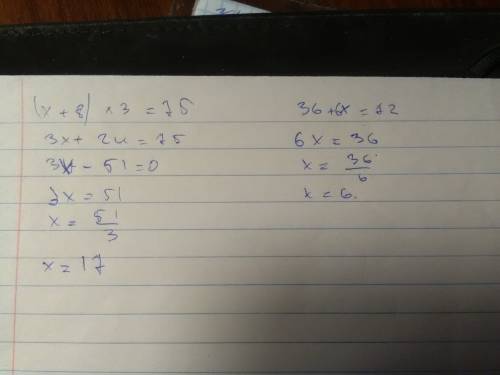 (x + 8) × 3 = 75
3x + 24 = 75
3x - 51 = 0
3x = 51
x = 51/3
x = 17
36 + 6x = 72
6x = 36
x = 36/6
x = 6.